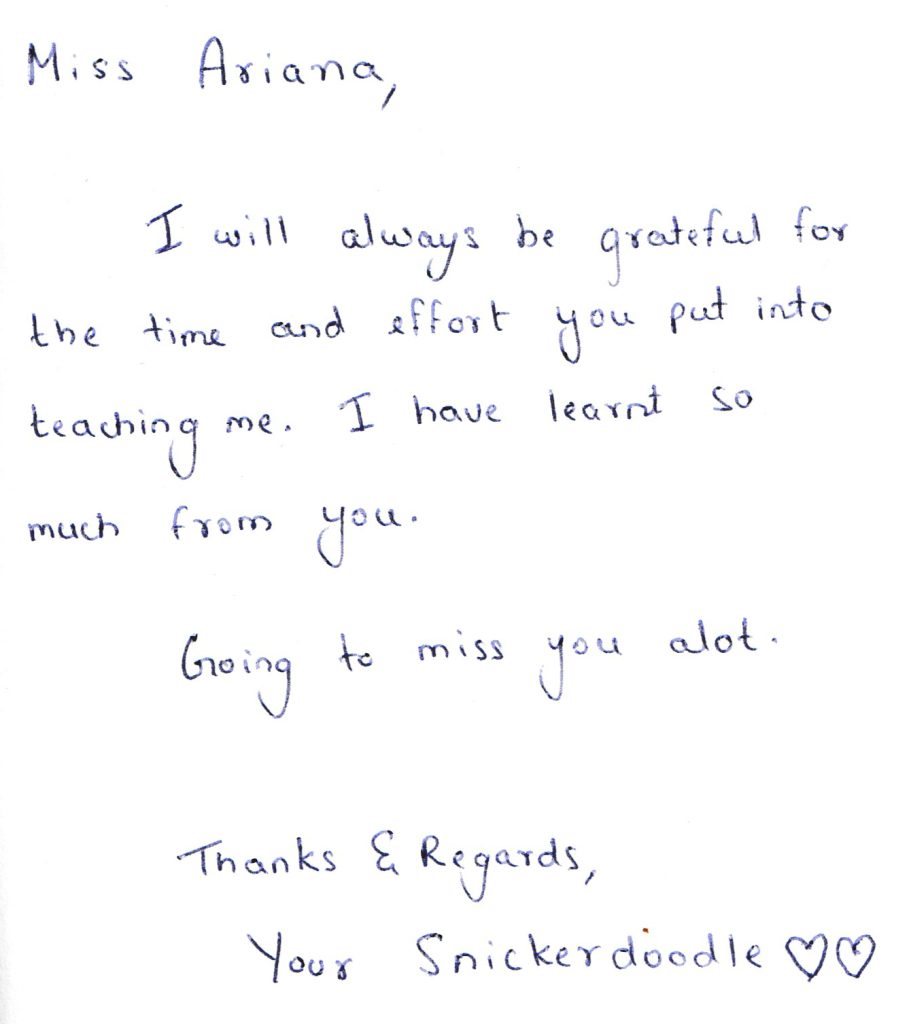 Miss Ariana,
I will always be grateful for
the time and effort you put into
teaching me. I have learnt so
much from you.
Going to miss you alot.
Thanks & Regards,
Your Snickerdoodle ♡♡